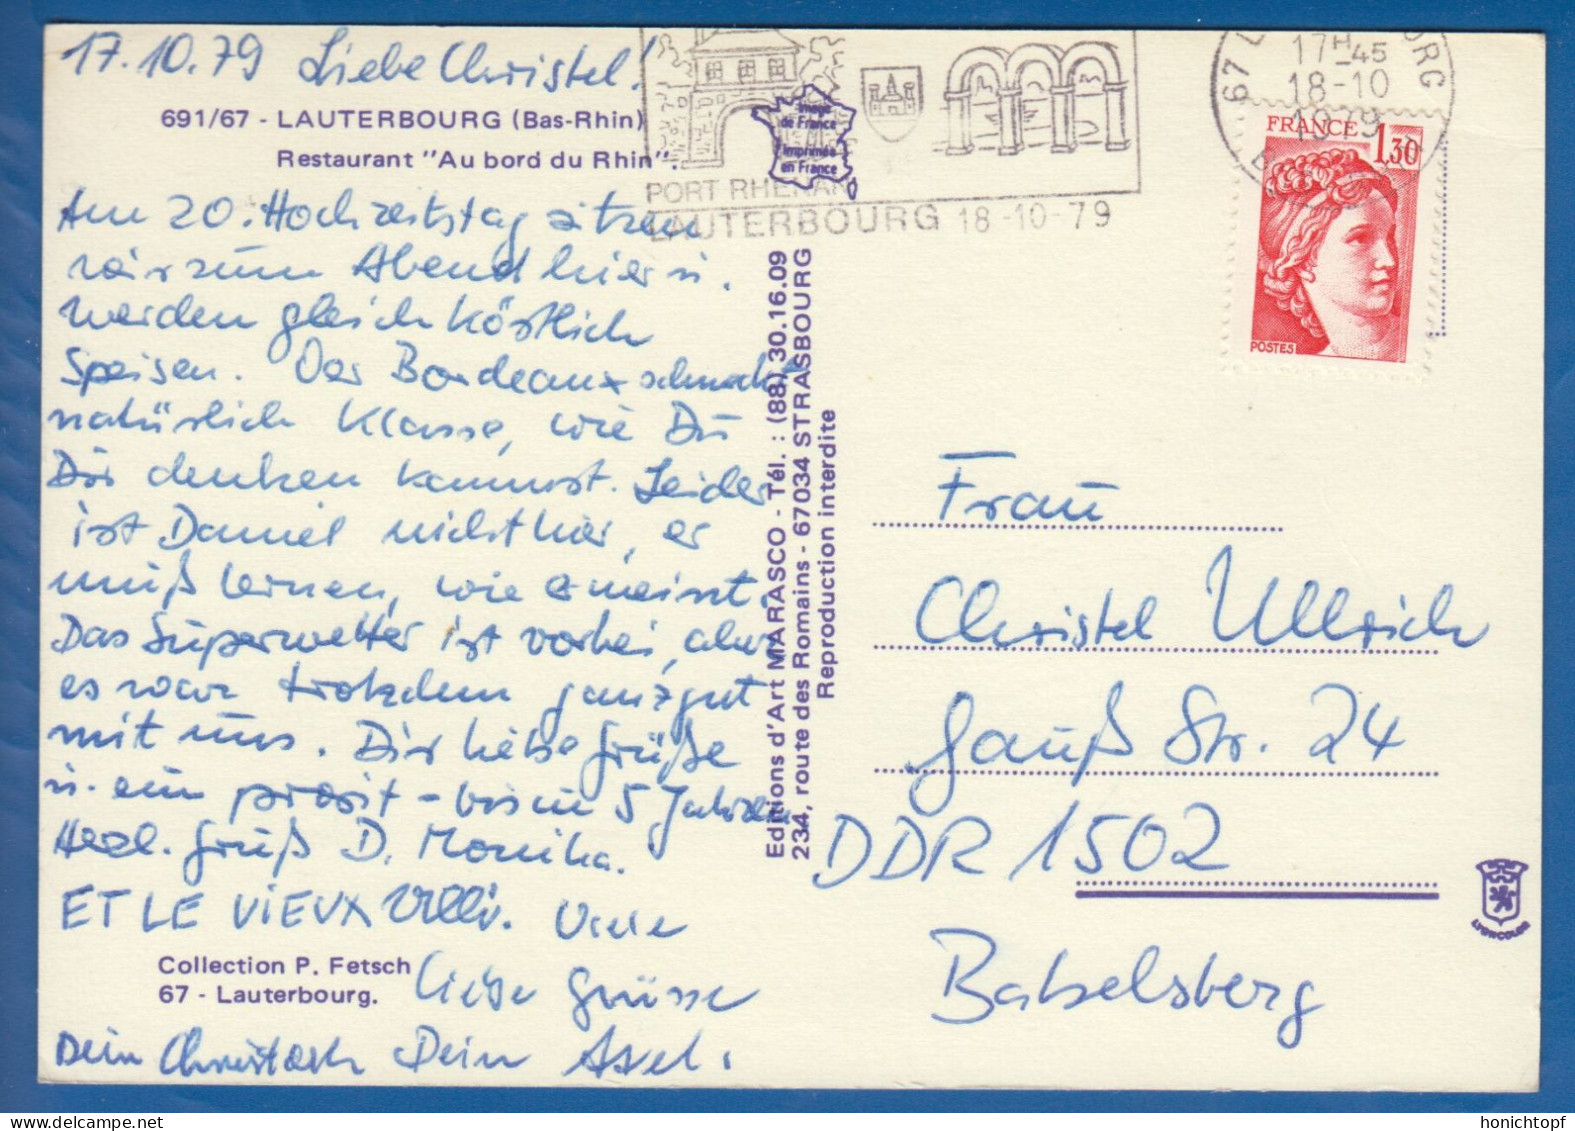 17.10.79 Liebe Christel!
691/67 - LAUTERBOURG (Bas-Rhin)
Restaurant "Au bord du Rhin".
Am 20. Hochzeitstag sitzen
wir zum Abend hier u.
werden gleich köstlich
Speisen. Der Bordeaux schmeckt
natürlich Klasse, wie Du
Dir denken kannst. Leider
ist Daniel nicht hier, er
muß lernen, wie er meint.
Das Superwetter ist vorbei, aber
es war trotzdem ganz gut
mit uns. Dir liebe Grüße
u. ein prosit - bis in 5 Jahren
Herzl. Gruß D. Monika.
ET LE VIEUX Ulli. Viele
liebe Grüsse
Collection P. Fetsch
67 - Lauterbourg.
Dein Christoph Dein Axel.
Image
de France
Imprimée
en France
PORT RHENAN
LAUTERBOURG 18-10-79
67 L
ORG
17H45
18-10
1979
FRANCE 1,30
POSTES
Editions d'Art MARASCO - Tél. : (88) 30.16.09
234, route des Romains - 67034 STRASBOURG
Reproduction interdite
Frau
Christel Ullrich
Gauß Str. 24
DDR 1502
Babelsberg
LYONCOLOR
honichtopf